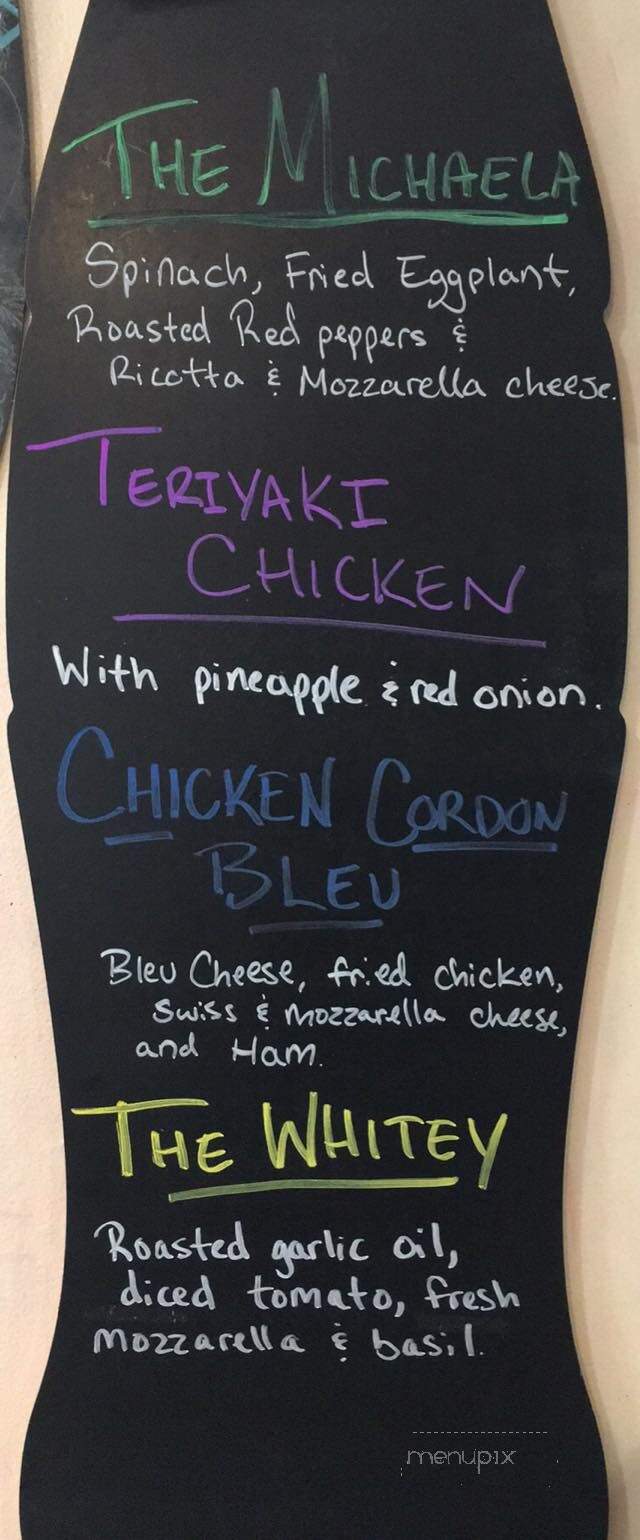 THE MICHAELA
Spinach, Fried Eggplant,
Roasted Red peppers &
Ricotta & Mozzarella cheese.
TERIYAKI
CHICKEN
With pineapple & red onion.
CHICKEN CORDON
BLEU
Bleu Cheese, fried chicken,
Swiss & mozzarella cheese,
and Ham.
THE WHITEY
Roasted garlic oil,
diced tomato, fresh
mozzarella & basil.
menupix